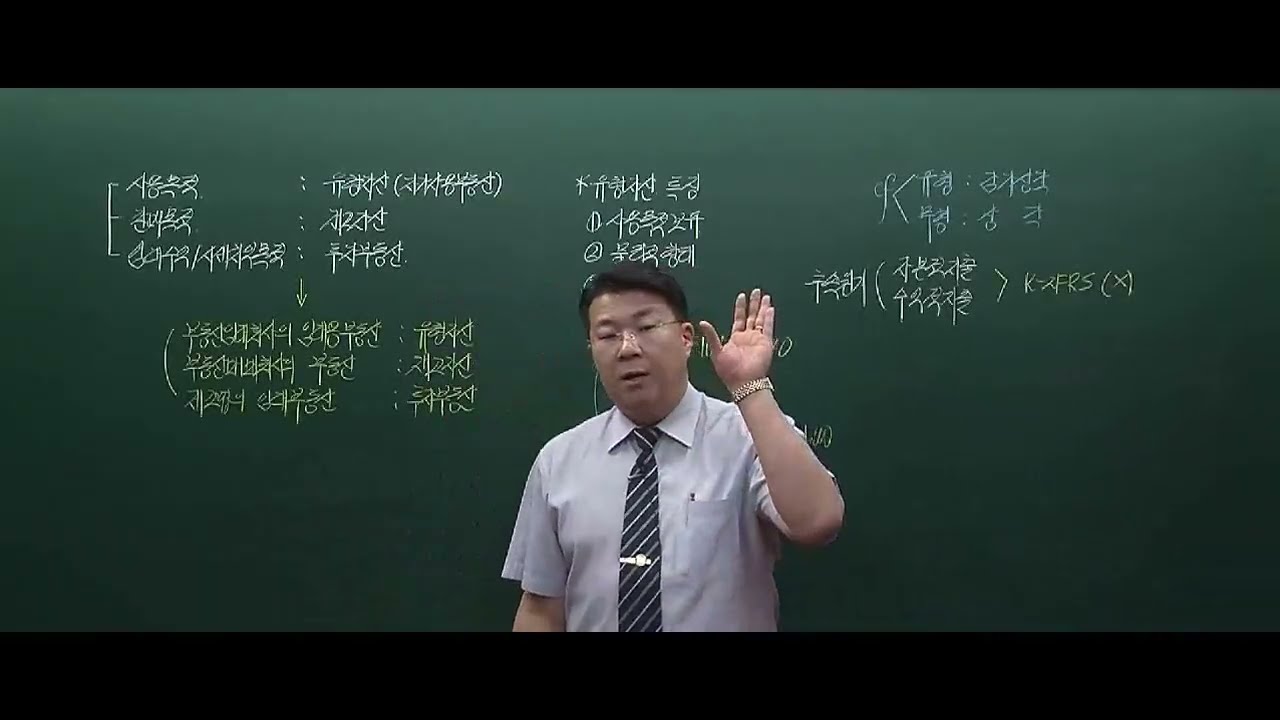 사용목적 : 유형자산 (자가사용부동산)
판매목적 : 재고자산
임대수익/시세차익목적 : 투자부동산
부동산임대회사의 임대용부동산 : 유형자산
부동산매매회사의 부동산 : 재고자산
제조기업의 임대부동산 : 투자부동산
* 유형자산 특징
① 사용목적 보유
② 물리적 형태
cf 유형 : 감가상각
무형 : 상 각
후속원가 ( 자본적지출
수익적지출 > K-IFRS (X)